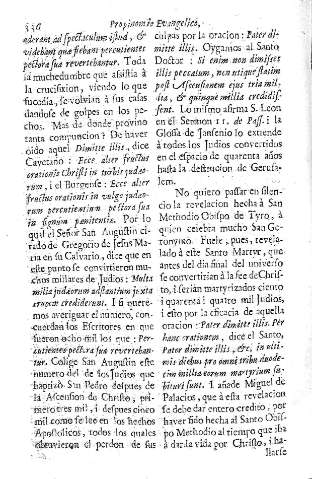 336 Propinomio Evangelico,
aderant ad spectaculum istud, &
videbant quæ fiebant percutientes
pectora sua revertebantur. Toda
la muchedumbre que assistia à
la crucifixion, viendo lo que
sucedia, se volvian à sus casas
dandose de golpes en los pe-
chos. Mas de donde provino
tanta compuncion? De haver
oido aquel Dimitte illis, dice
Cayetano: Ecce alter fructus
orationis Christi in turbis judæo-
rum, i el Burgense: Ecce alter
fructus orationis in vulgo judæo-
rum percutientium pectora sua
in signum pœnitentiæ. Por lo
qual el Señor San Augustin ci-
tado de Gregorio de Jesus Ma-
ria en su Calvario, dice que en
este punto se convirtieron mu-
chos millares de Judios: Multa
millia judæorum adstantium juxta
crucem crediderunt. I si quere-
mos averiguar el numero, con-
cuerdan los Escritores en que
fueron ocho mil los que: Per-
cutientes pectora sua revertebantur.
Colige San Augustin este
numero del de los Judios que
baptizò San Pedro despues de
la Ascension de Christo, pri-
mero tres mil, i despues cinco
mil como se lee en los hechos
Apostolicos, todos los quales
obtuvieron el perdon de sus
culpas por la oracion: Pater di-
mitte illis. Oygamos al Santo
Doctor: Si enim non dimisisset
illis peccatum, non utique statim
post Ascensionem ejus tria mil-
lia, & quinque millia credidis-
sent. Lo mismo afirma S. Leon
en el Sermon 11. de Pass. i la
Glossa de Jansenio lo extiende
à todos los Judios convertidos
en el espacio de quarenta años
hasta la destruccion de Gerusa-
lem.
No quiero passar en silen-
cio la revelacion hecha à San
Methodio Obispo de Tyro, à
quien celebra mucho San Ge-
ronymo. Fuele, pues, revela-
lado à este Santo Martyr, que
antes del dia final del universo
se convertirán à la fee de Chris-
to, i serian martyrizados ciento
i quarenta i quatro mil Judios,
i esto por la eficacia de aquella
oracion: Pater dimitte illis. Per
hanc orationem, dice el Santo,
Pater dimitte illis, &c, in ulti-
mis diebus pro omni tribu duode-
cim millia eorum martyrium sub-
ituri sunt. I añade Miguel de
Palacios, que à esta revelacion
se debe dar entero credito, por
haver sido hecha al Santo Obis-
po Methodio al tiempo que iba
à dar la vida por Christo, i ha-
llarse